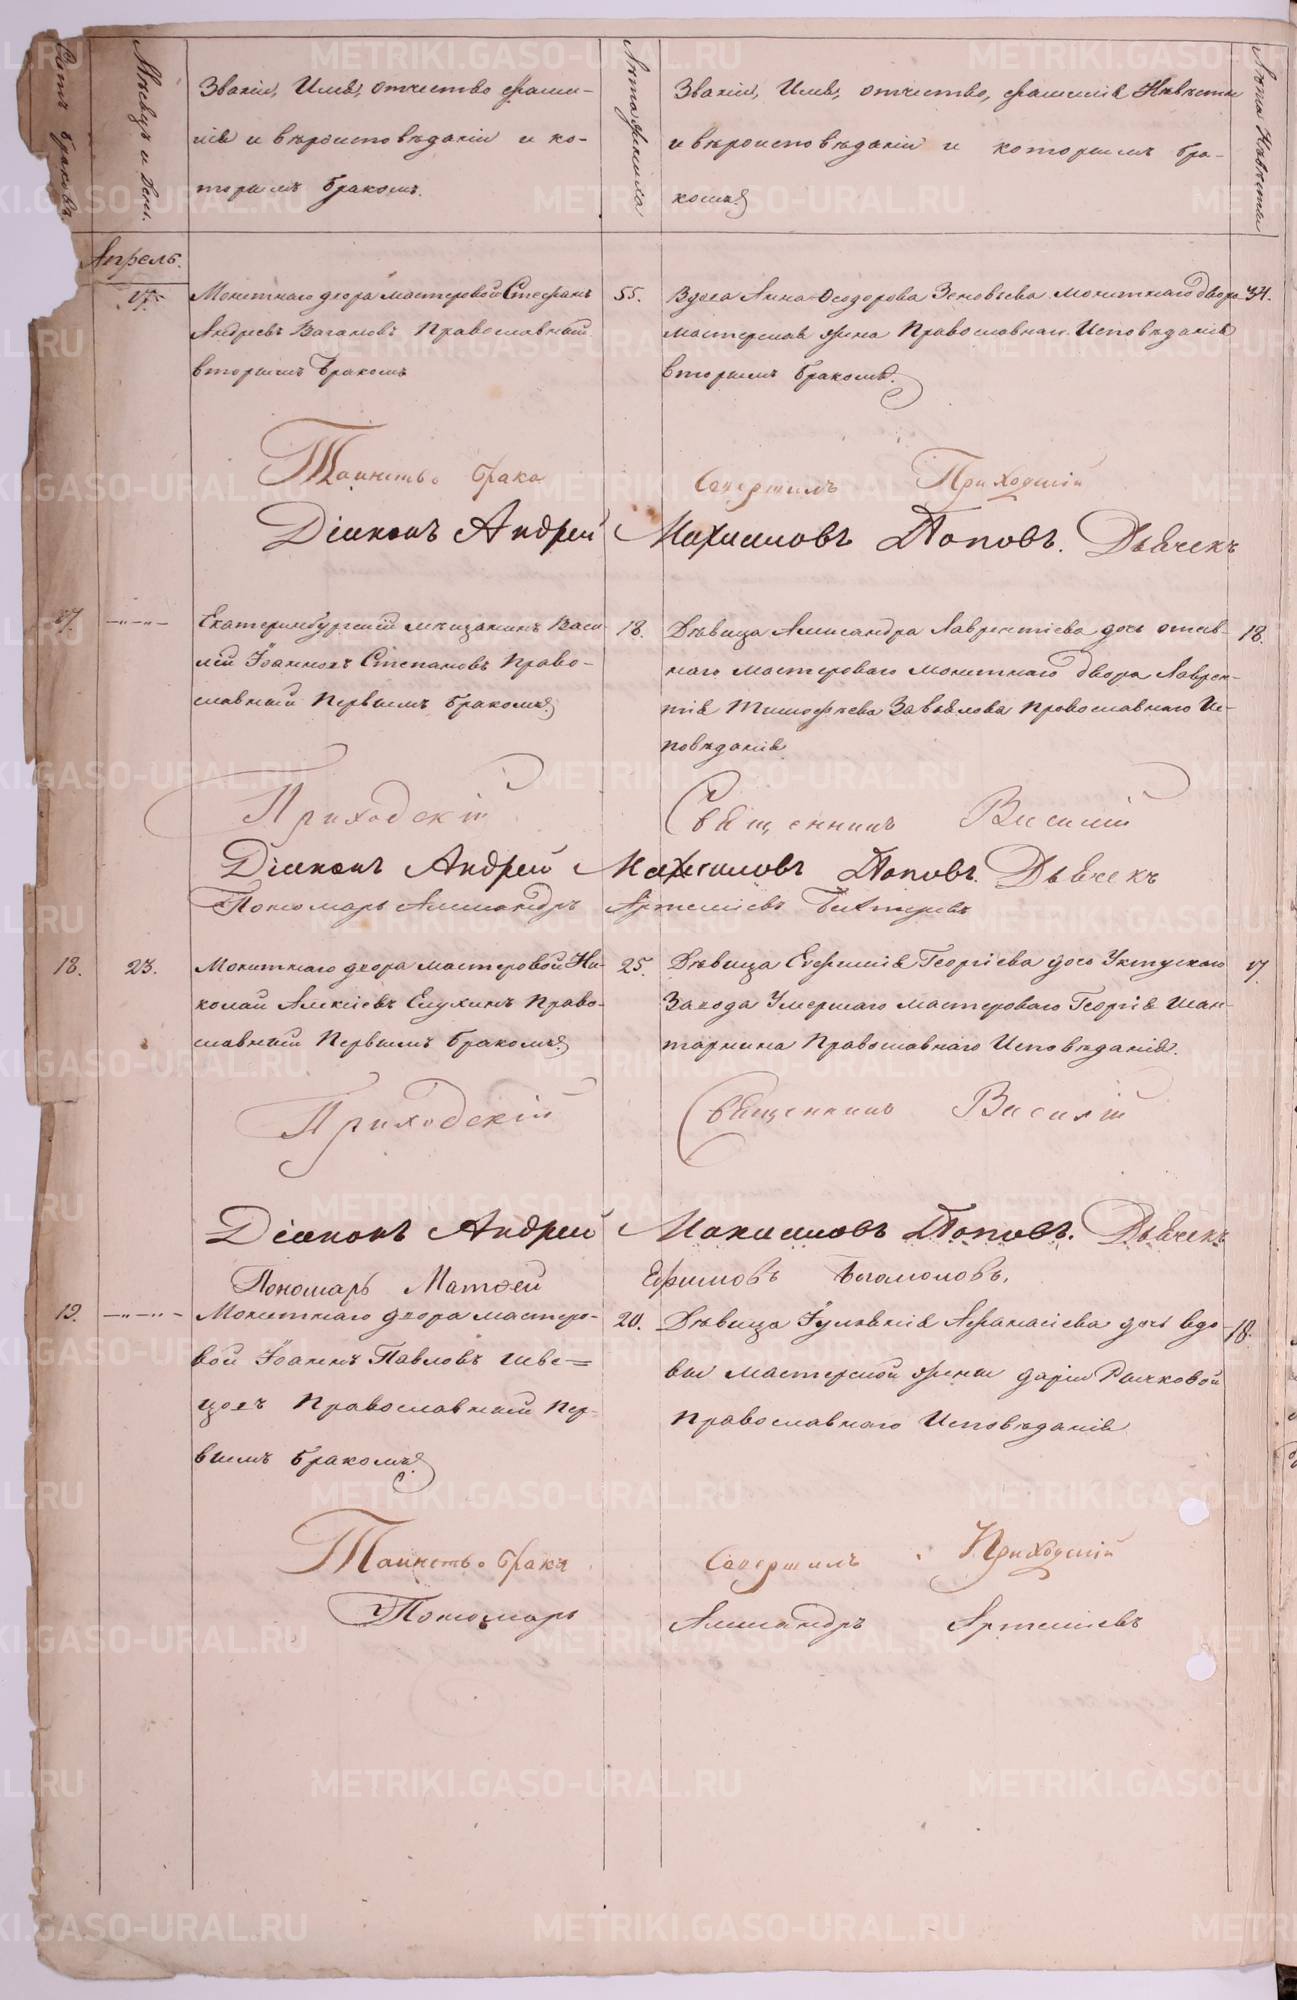 Счетъ браковъ
Мѣсяцъ и День.
Званіе, Имя, отчество фами-
лія и вѣроисповѣданіе и ко-
торымъ бракомъ.
Лѣта жениха
Званіе, Имя, отчество, фамилія Невѣсты
и вѣроисповѣданіе и которымъ бра-
комъ
Лѣта Невѣсты
Апрель.
17.
Монетнаго двора мастеровой Стефанъ
Андреевъ Вагановъ Православный
вторымъ бракомъ
55.
Вдова Анна Ѳеодорова Зеновьева монетнаго двора
мастерская жена Православнаго Исповѣданія
вторымъ бракомъ.
34.
Таинство брака Совершилъ Приходскій
Діаконъ Андрей Максимовъ Поповъ. Дьячекъ
17. —„—„—
Екатеринбургскій мѣщанинъ Васи-
лій Іоанновъ Степановъ Право-
славный Первымъ бракомъ
18.
Дѣвица Александра Лаврентіева дочь отстав-
наго мастероваго монетнаго двора Лаврен-
тія Тимофѣева Завьялова Православнаго Ис-
повѣданія
18.
Приходскій Священникъ Василій
Діаконъ Андрей Максимовъ Поповъ. Дьячекъ
Пономарь Александръ Артеміевъ Бехтеревъ
18. 23.
Монетнаго двора мастеровой Ни-
колай Алексіевъ Елухинъ Право-
славный Первымъ бракомъ
25.
Дѣвица Евфимія Георгіева дочь Уктускаго
Завода Умершаго мастероваго Георгія Шан-
таркина Православнаго Исповѣданія.
17
Приходскій Священникъ Василій
Діаконъ Андрей Максимовъ Поповъ. Дьячекъ
Пономарь Матѳей Ефимовъ Богомоловъ.
19. —„—„—
Монетнаго двора мастеро-
вой Іоаннъ Павловъ Шве-
цовъ Православный пер-
вымъ бракомъ
20.
Дѣвица Іуліанія Афанасіева дочь вдо-
вы мастерской жены Даріи Рычковой
Православнаго Исповѣданія
18.
Таинство брака Совершилъ Приходскій
Пономарь Александръ Артеміевъ